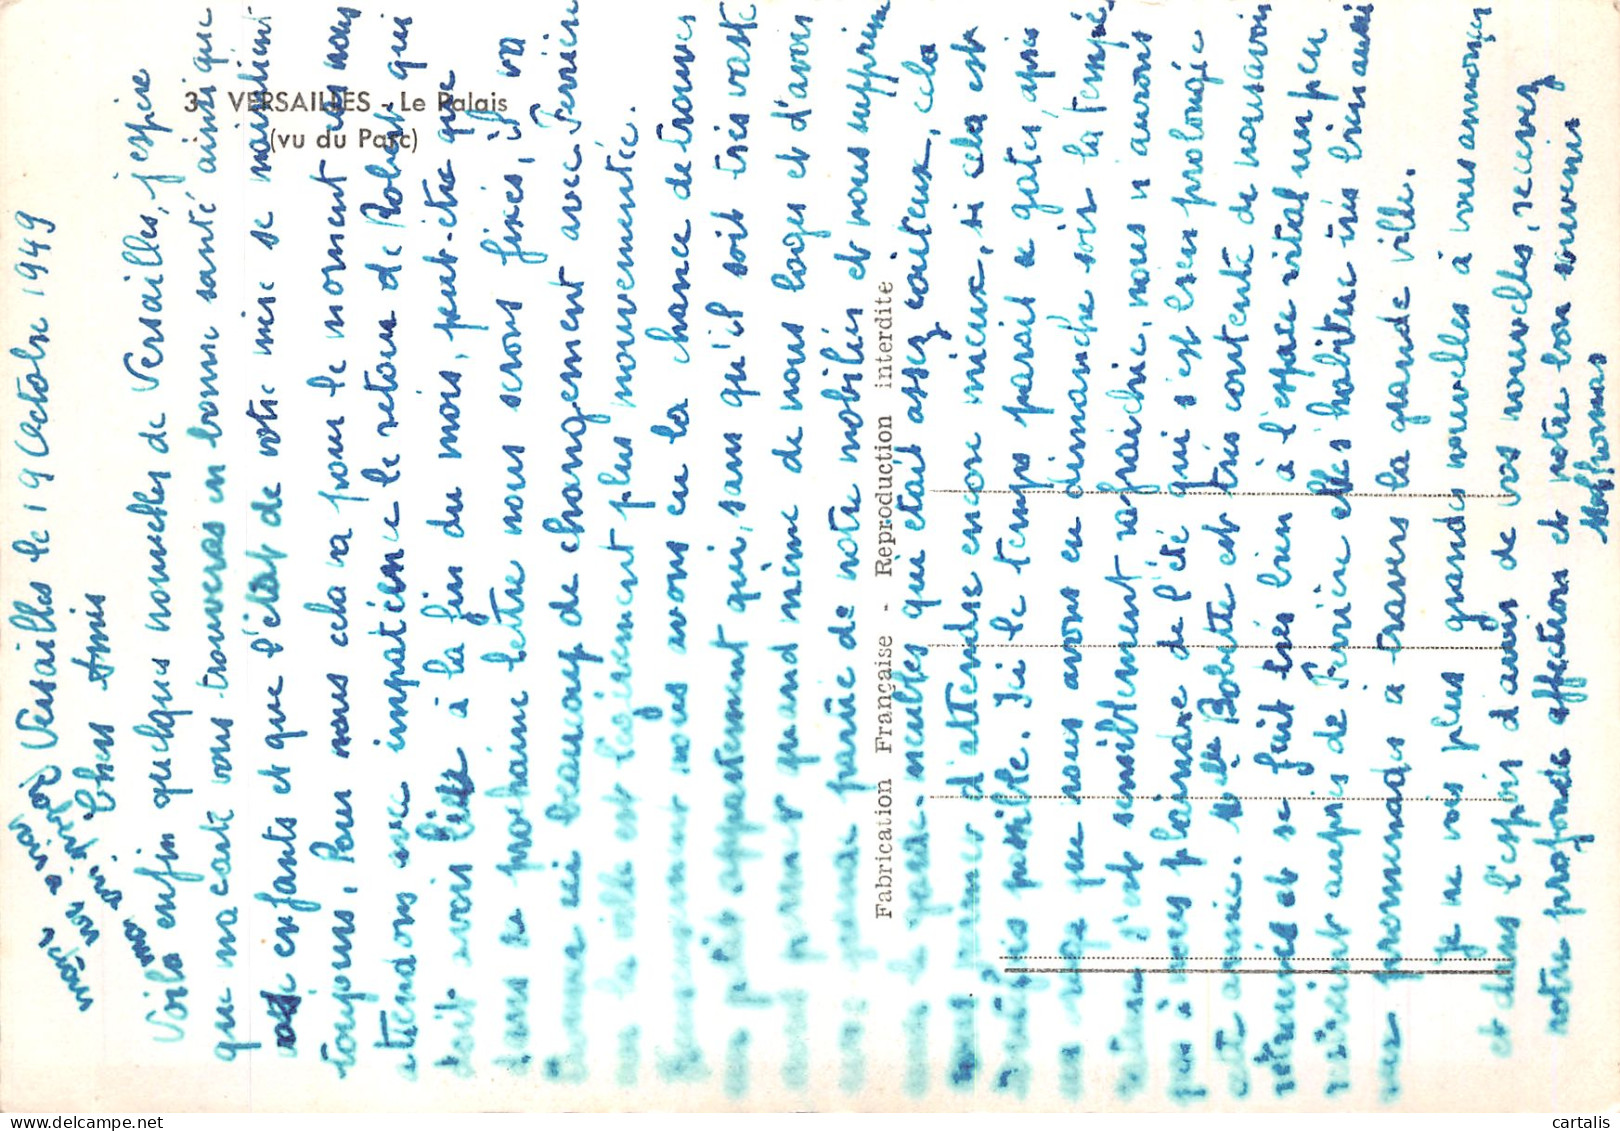 3 VERSAILLES - Le Palais
(vu du Parc)
Fabrication Française - Reproduction interdite
Versailles le 19 Octobre 1949
Chers Amis
Voilà enfin quelques nouvelles de Versailles, j'espère
que ma carte vous trouveras en bonne santé ainsi que
enfants et que l'état de votre mère se maintient
toujours, Pour nous cela va pour le moment et nous
attendons avec impatience le retour de Robert qui
doit avoir lieu à la fin du mois, peut-être que
dans la prochaine lettre nous serons fixés, il y a
comme ici beaucoup de changement avec
la ville est légèrement plus mouvementée.
nous avons eu la chance de trouver
un petit appartement qui, sans qu'il soit très vaste
quand même de nous loger et d'avoir
une partie de notre mobilier et nous supprim
meubles qui était assez couteux, cela
d'attendre encore mieux, si cela est
possible. Ici le temps parait se gater, après
que nous avons eu dimanche soir la tempé
s'est sensiblement rafraichie, nous n'aurons
pas à nous plaindre de l'été qui s'est bien prolongé
cette année. est très contente de nous avoir
et se fait très bien à l'espace vital un peu
auprès de elle s'habitue très bien aussi
aux promenades à travers la grande ville.
Je ne vois plus grandes nouvelles à vous annoncer
et dans l'espoir d'avoir de vos nouvelles, recevez
notre profonde affection et notre bon souvenir
Thomas